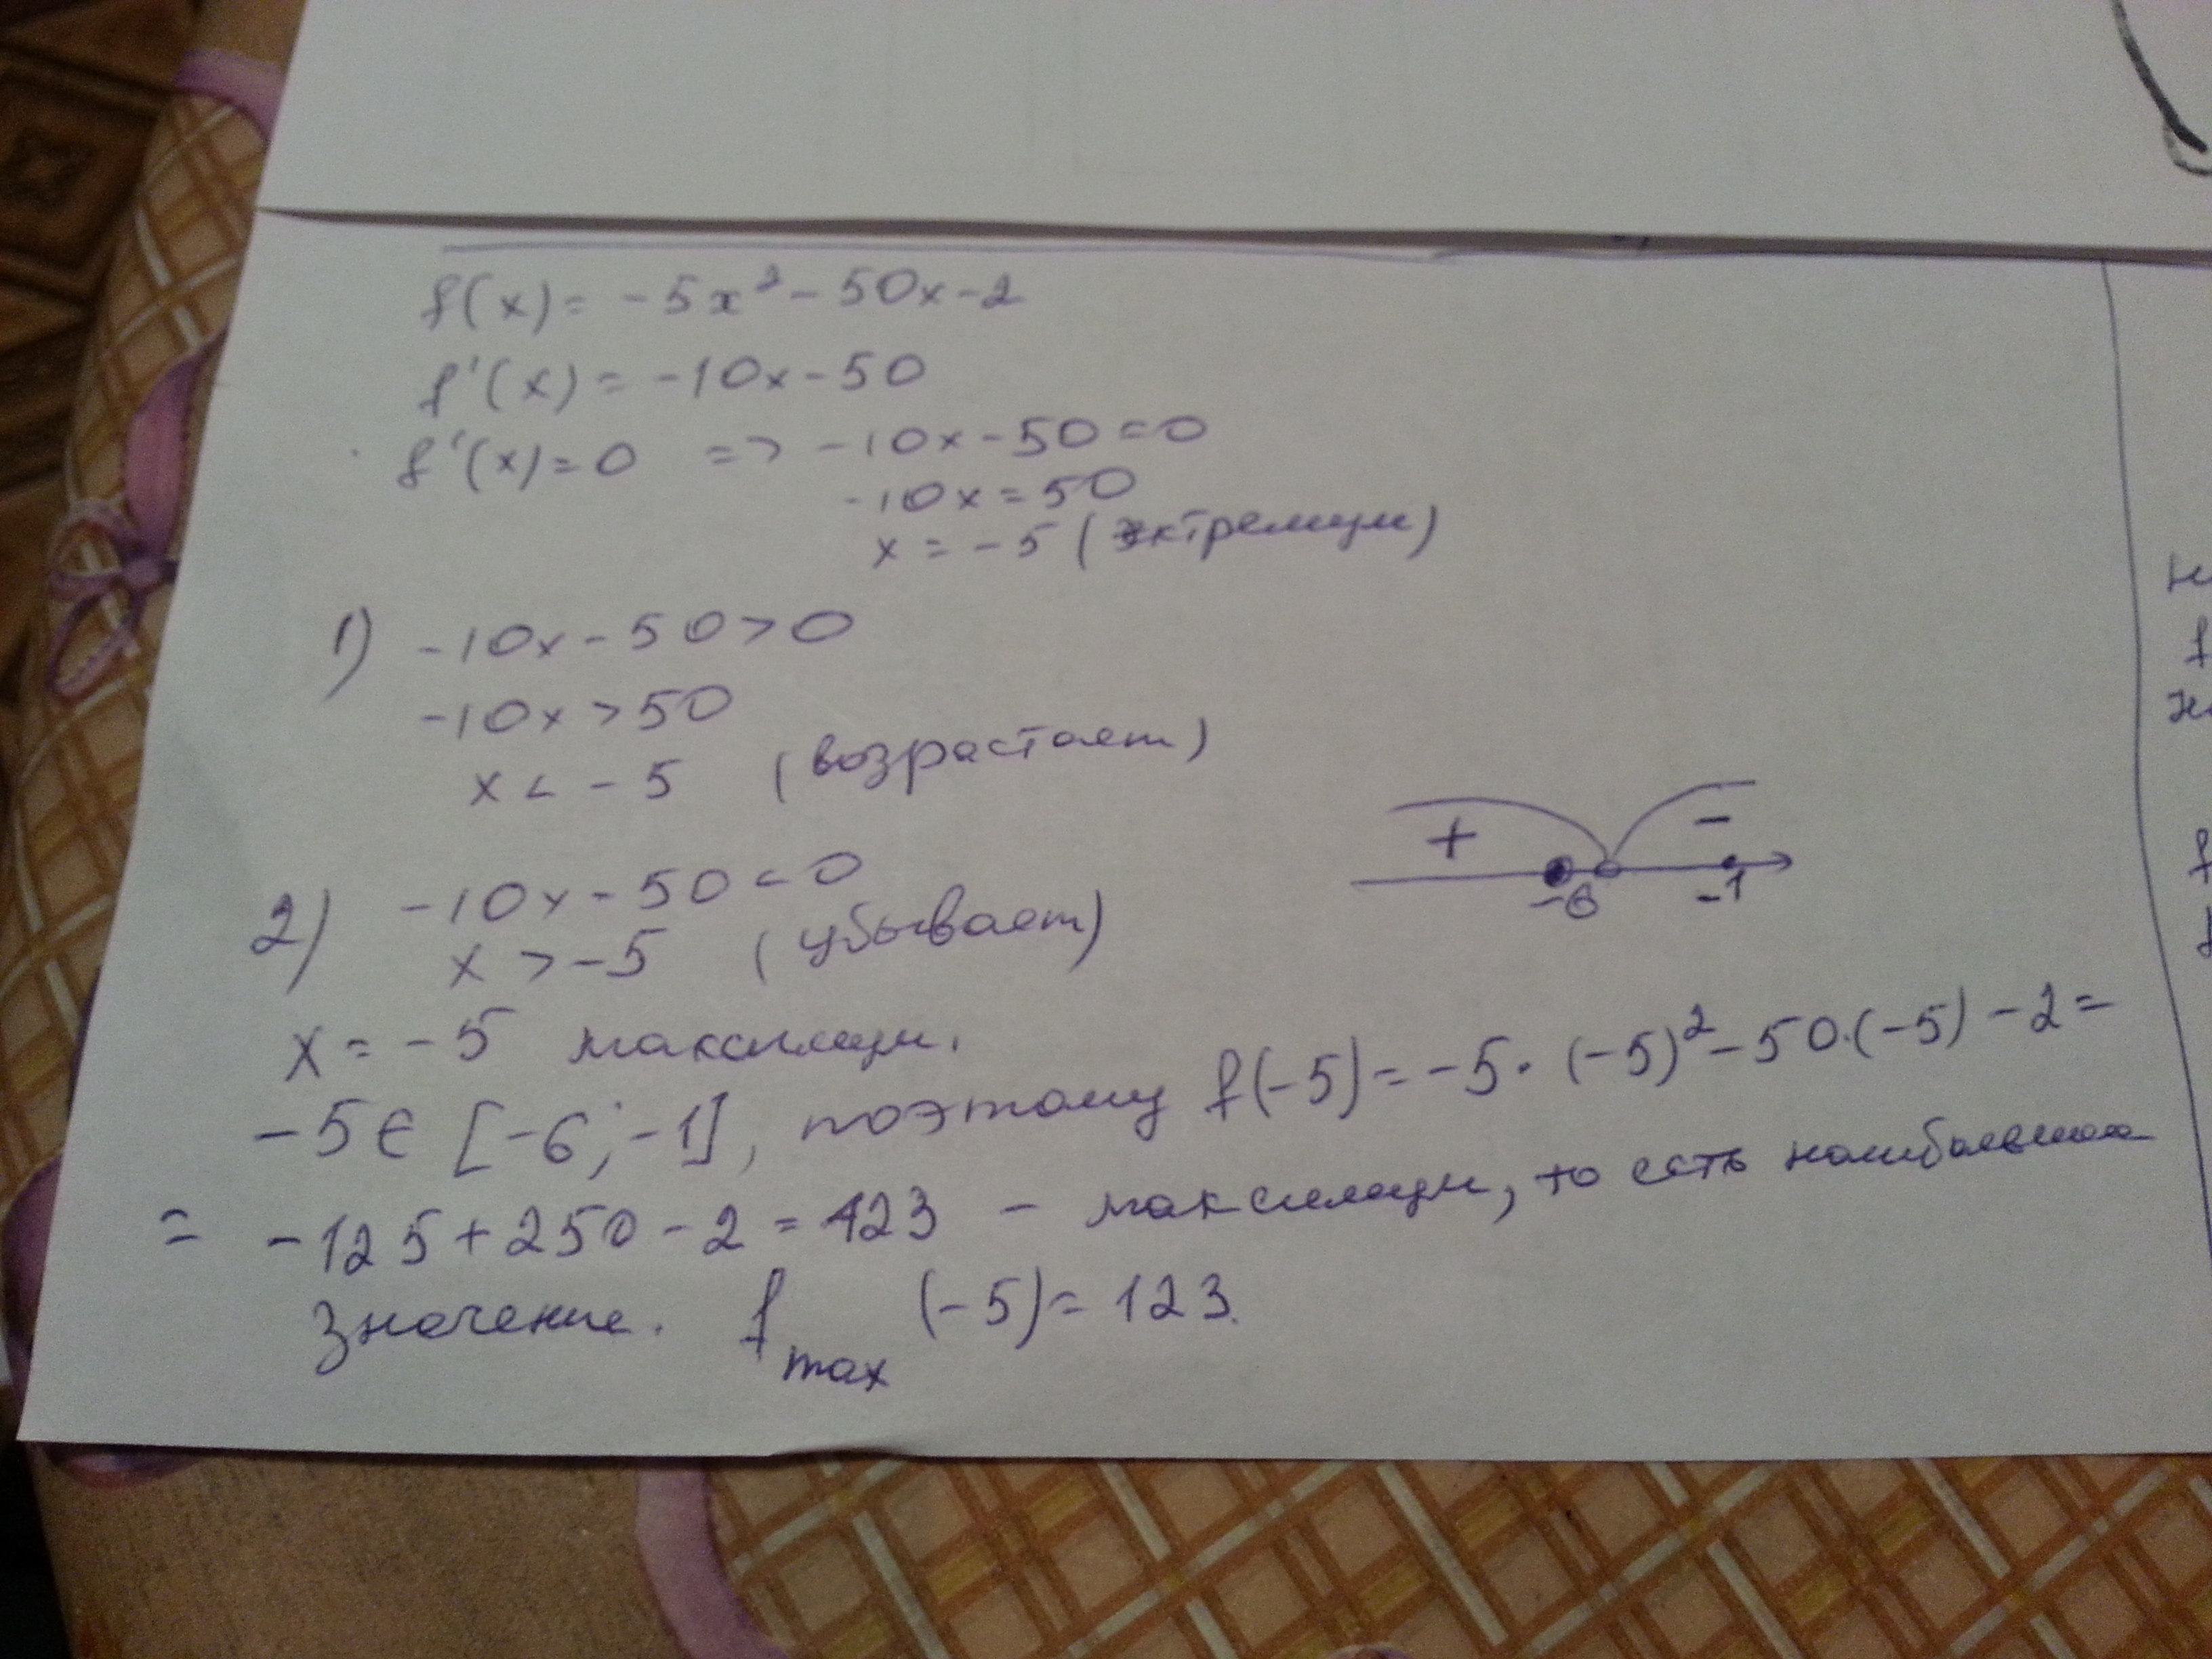 f(x) = -5x² - 50x - 2
f'(x) = -10x - 50
f'(x) = 0 => -10x - 50 = 0
-10x = 50
x = -5 (эктремум)
1) -10x - 50 > 0
-10x > 50
x < -5 (возрастает)
+ -
-6 -1
2) -10x - 50 < 0
x > -5 (убывает)
x = -5 максимум.
-5 ∈ [-6; -1], поэтому f(-5) = -5 · (-5)² - 50 · (-5) - 2 =
= -125 + 250 - 2 = 123 - максимум, то есть наибольшое
значение. f max (-5) = 123.